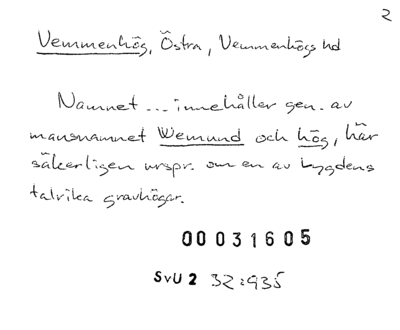 2
Vemmenhög, Östra, Vemmenhögs hd
Namnet ... innehåller gen. av
mansnamnet Wemund och hög, här
säkerligen urspr. om en av bygdens
talrika gravhögar.
00031605
SvU 2 32:935